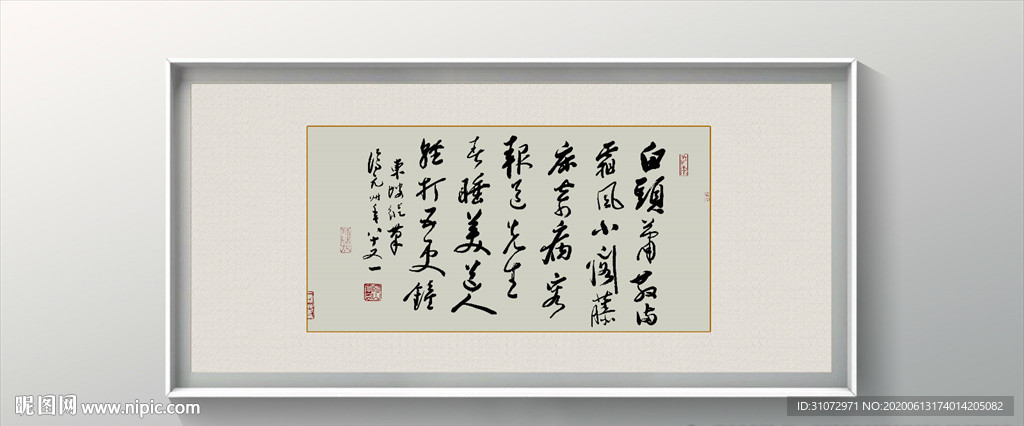 白頭蕭散滿
霜風小閣藤
床寄病容
報道先生
春睡美道人
輕打五更鐘
東坡縱筆
八十又一
昵图网 www.nipic.com
ID:31072971 NO:20200613174014205082